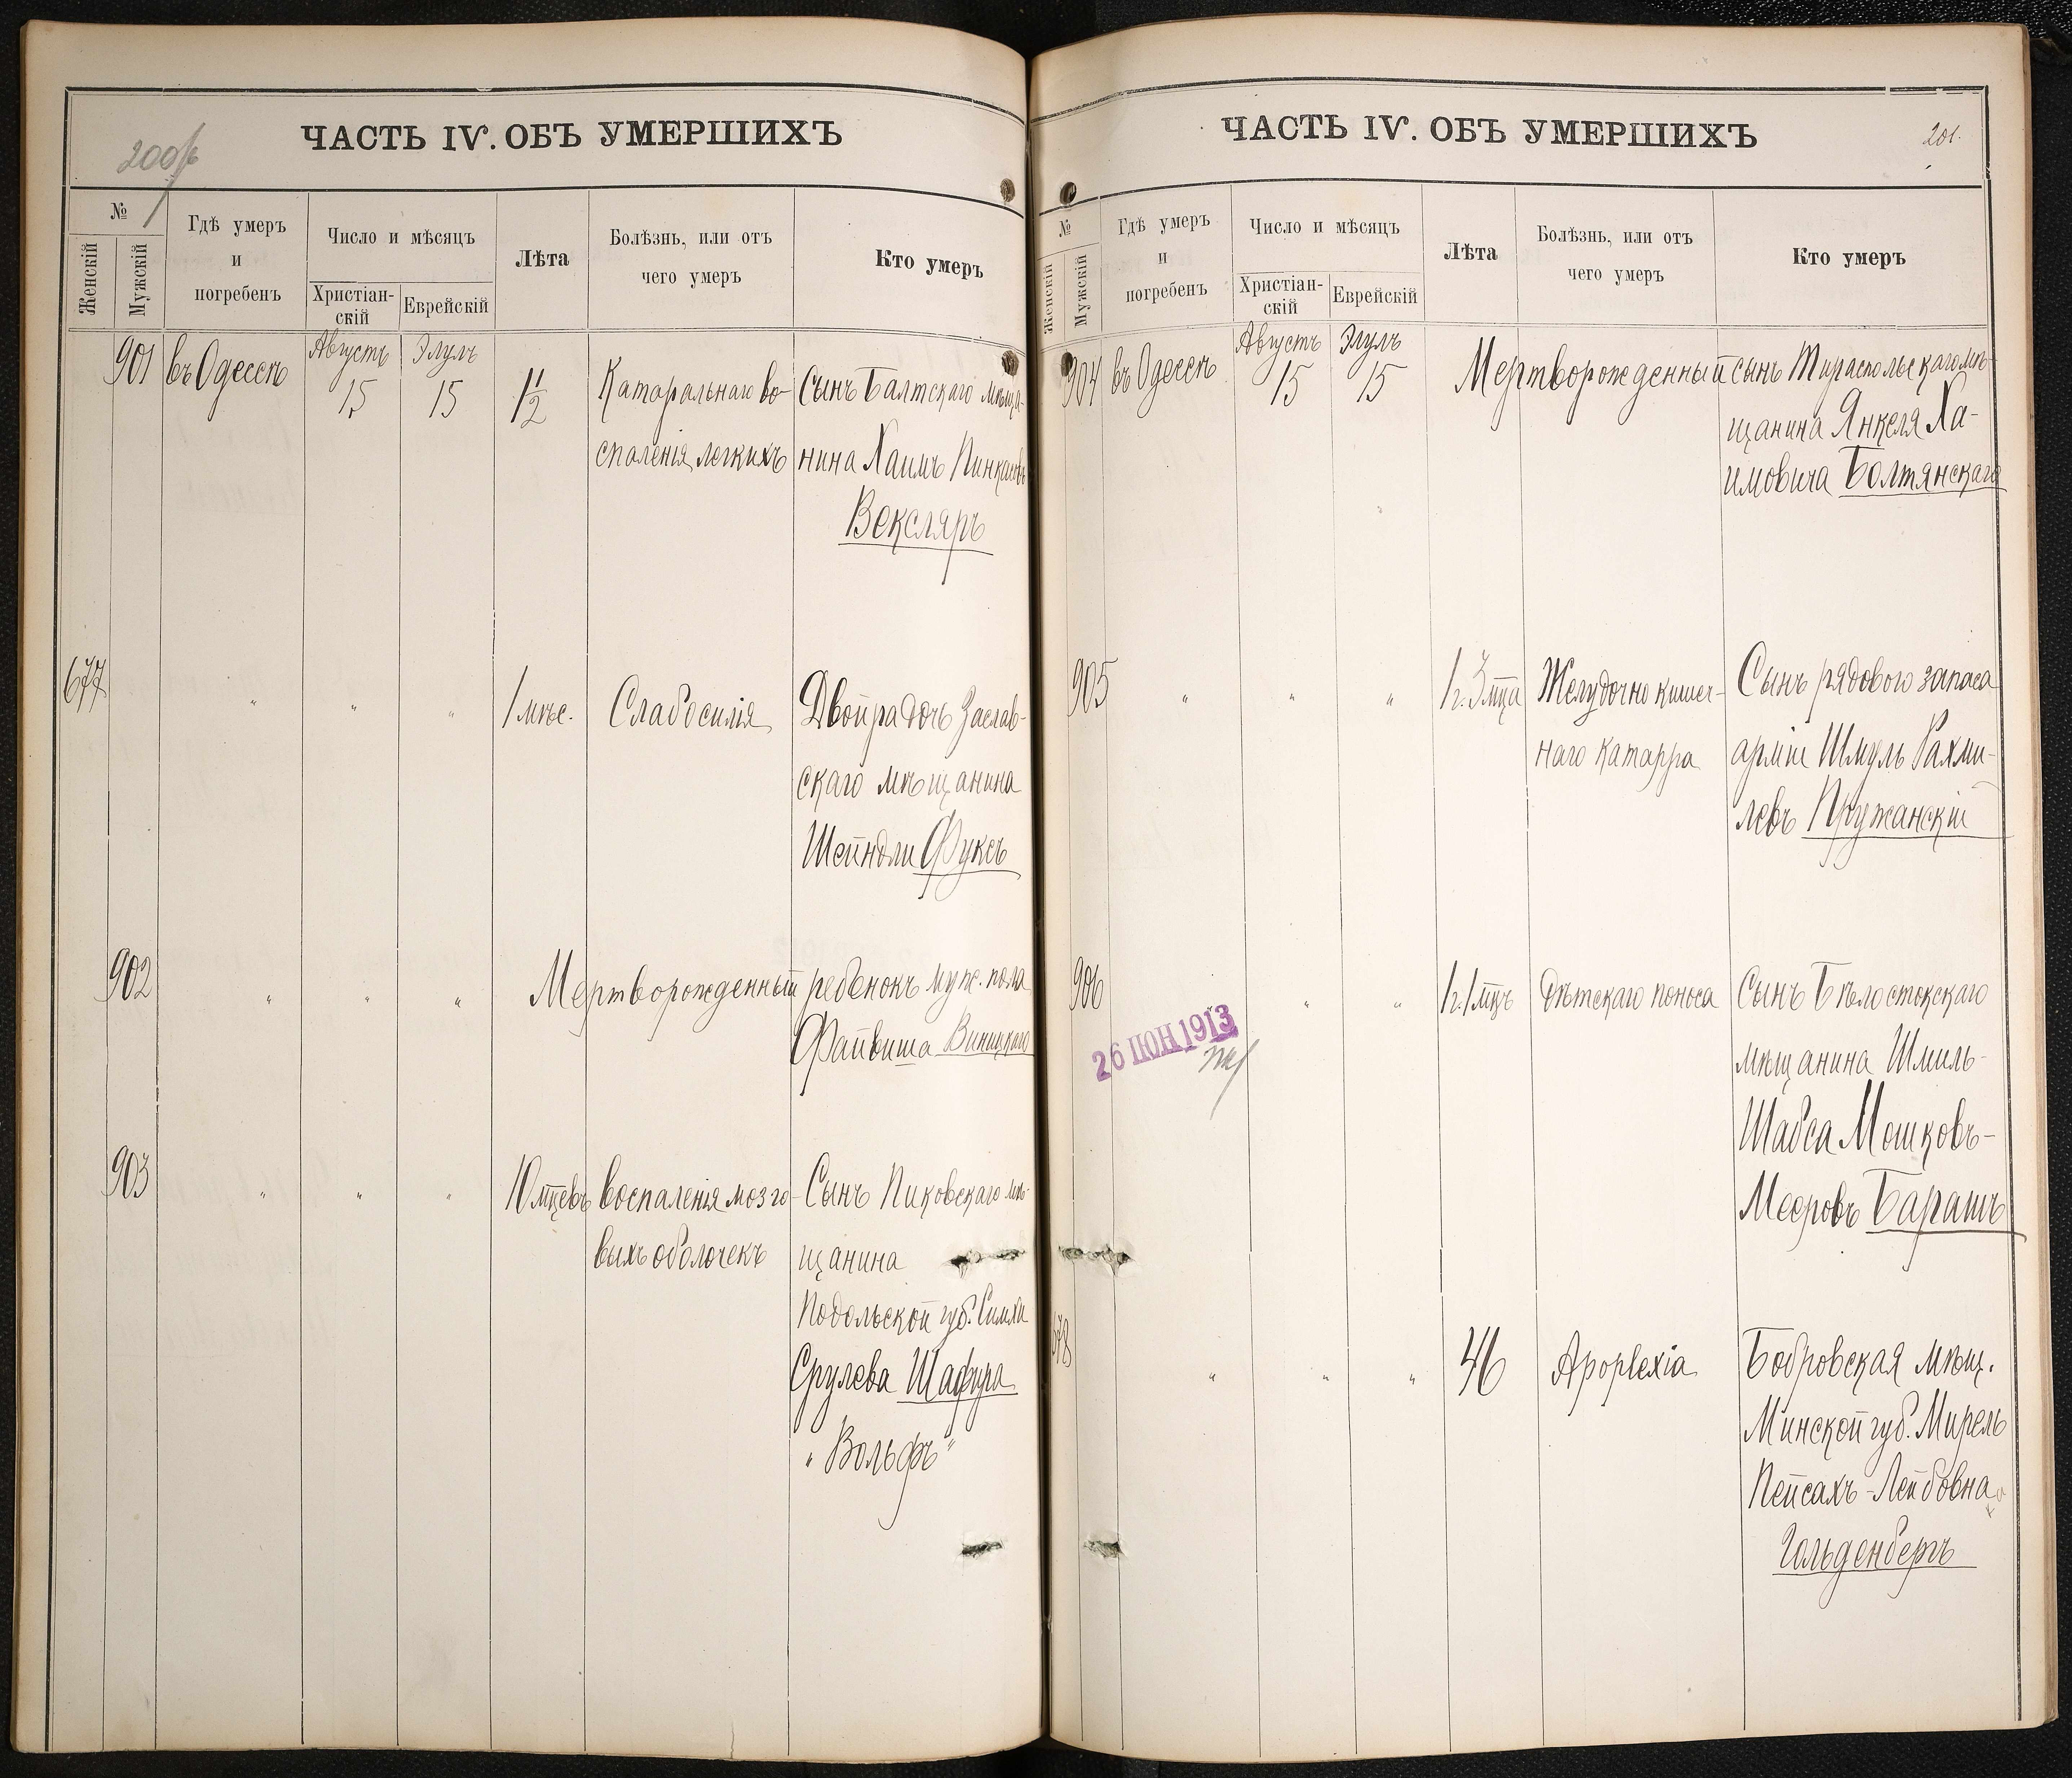 200
ЧАСТЬ IV. ОБЪ УМЕРШИХЪ
№
Женскій
Мужскій
Гдѣ умеръ
и
погребенъ
Число и мѣсяцъ
Христіан-
скій
Еврейскій
Лѣта
Болѣзнь, или отъ
чего умеръ
Кто умеръ
901 въ Одессѣ Августъ 15 Элулъ 15 1 1/2
Катаральнаго во-
спаленія легкихъ
Сынъ Балтскаго мѣща-
нина Хаимъ Пинкасовъ
Векслярь
677 " " " 1 мѣс. Слабосилія
Двойра дочь Заслав-
скаго мѣщанина
Шейндли Фуксъ
902 " " " Мертворожденный ребенокъ муж. пола
Файвиша Виницкаго
903 " " " 10 мѣцевъ
воспаленія мозго-
выхъ оболочекъ
Сынъ Пиковскаго мѣ-
щанина
Подольской губ. Симхи
Срулева Шафира
"Вольфъ"
ЧАСТЬ IV. ОБЪ УМЕРШИХЪ
201.
№
Женскій
Мужскій
Гдѣ умеръ
и
погребенъ
Число и мѣсяцъ
Христіан-
скій
Еврейскій
Лѣта
Болѣзнь, или отъ
чего умеръ
Кто умеръ
904 въ Одессѣ Августъ 15 Элулъ 15
Мертворожденный сынъ Тираспольскаго мѣ-
щанина Янкеля Ха-
имовича Болтянскаго
905 " " " 1 г. 3 мца
Желудочно кишеч-
наго катарра
Сынъ рядового запаса
арміи Шмуль Рахми-
левъ Пружанскій
906 " " 1 г. 1 мцъ Дѣтскаго поноса
Сынъ Бѣлостокскаго
мѣщанина Шмиль-
Шабса Мошковъ-
Мееровъ Барашъ
26 ІЮН 1913
678 " " " 46 Apoplexia
Бобровская мѣщ.
Минской губ. Мирель
Пейсахъ-Лейбовна
Гольденбергъ